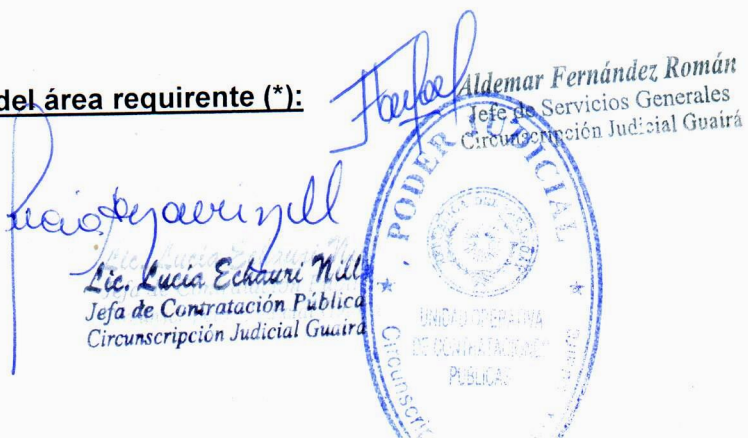 del área requirente (*):
Aldemar Fernández Román
Jefe de Servicios Generales
Circunscripción Judicial Guairá
Lic. Lucia Echauri Nill
Jefa de Contratación Pública
Circunscripción Judicial Guairá
PODER JUDICIAL
UNIDAD OPERATIVA
DE CONTRATACIONES
PÚBLICAS